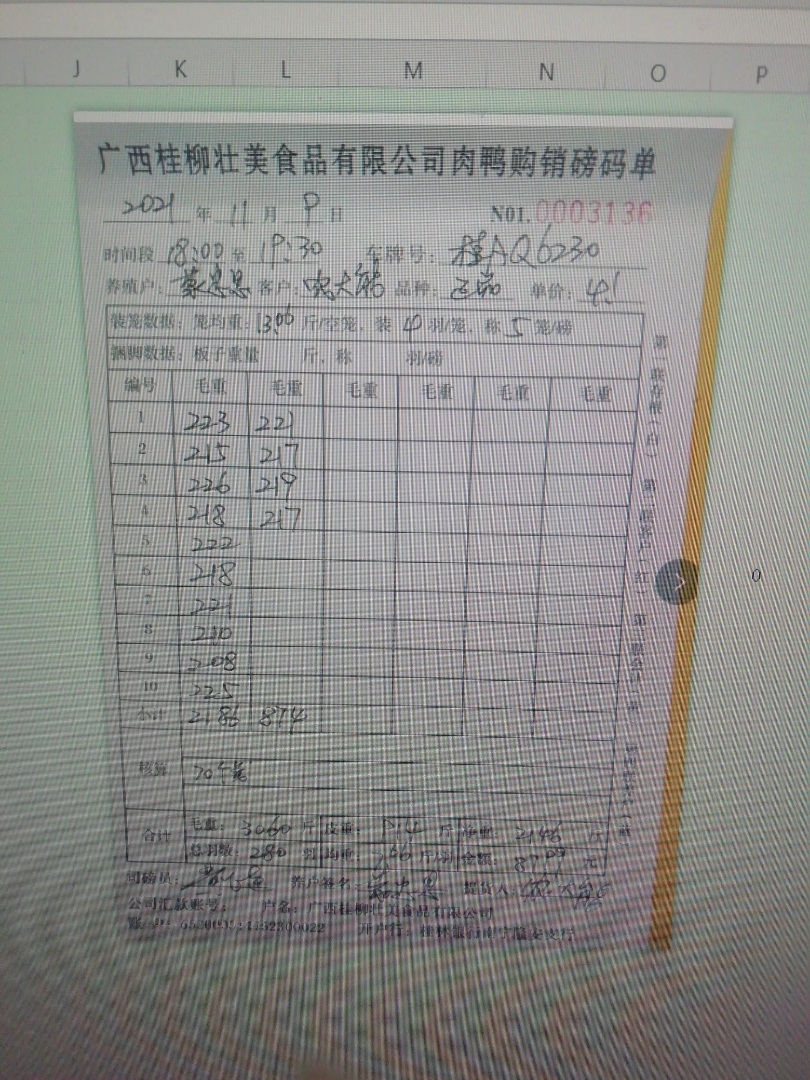 J K L M N O P
广西桂柳壮美食品有限公司肉鸭购销磅码单
2021 年 11 月 9 日 N01.0003136
时间段 18:00 至 19:30 车牌号: 桂AQ6230
养殖户: 客户: 农大 品种: 单价: 4.1
装笼数据: 笼均重: 13.06 斤/空笼, 装 4 羽/笼, 称 5 笼/磅
捆脚数据: 板子重量 斤, 称 羽/磅
编号 毛重 毛重 毛重 毛重 毛重 毛重
1 223 221
2 215 217
3 226 219
4 218 217
5 222
6 218
7 221
8 210
9 208
10 225
小计 2186 874
核算 70个笼
合计 毛重: 3060 斤 皮重: 914 斤 净重: 2146 斤
总羽数: 280 羽 均重: 7.66 斤/羽 金额: 元
司磅员: 养户签名: 提货人: 农大
公司汇款账号: 户名: 广西桂柳壮美食品有限公司
开户行: 桂林银行南宁隆安支行
第一联存根(白) 第 联客户(红) 第三联会计
0